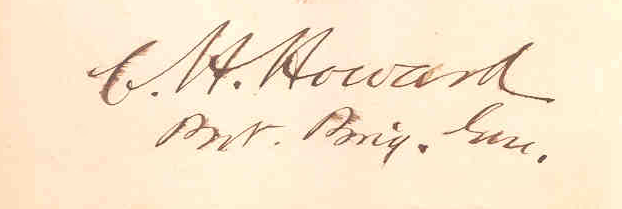 C. H. Howard
Bvt. Brig. Gen.